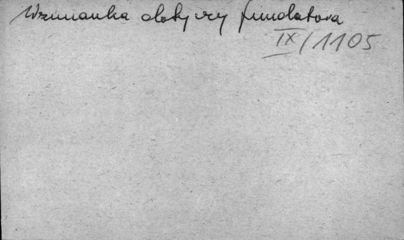 Wzmianka dotyczy fundatora
IX/1105